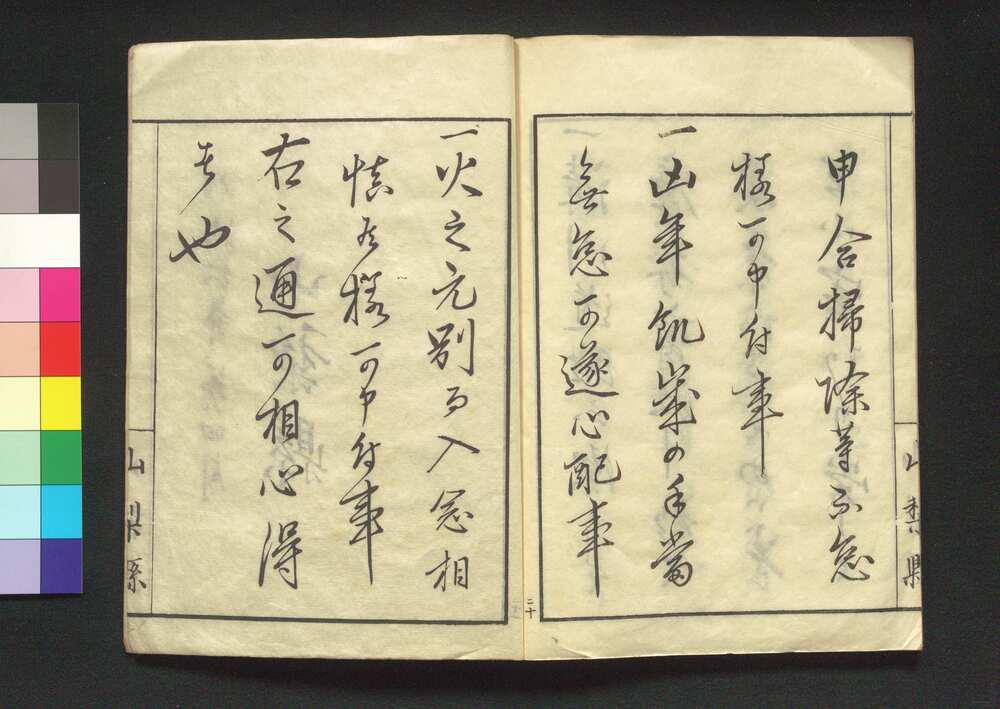 申合掃除等不怠
様可申付事
一凶年飢歳の手當
無怠可遂心配事
一火之元別而入念相
慎候様可申付事
右之通可相心得
者也
山梨県
山梨縣
二十